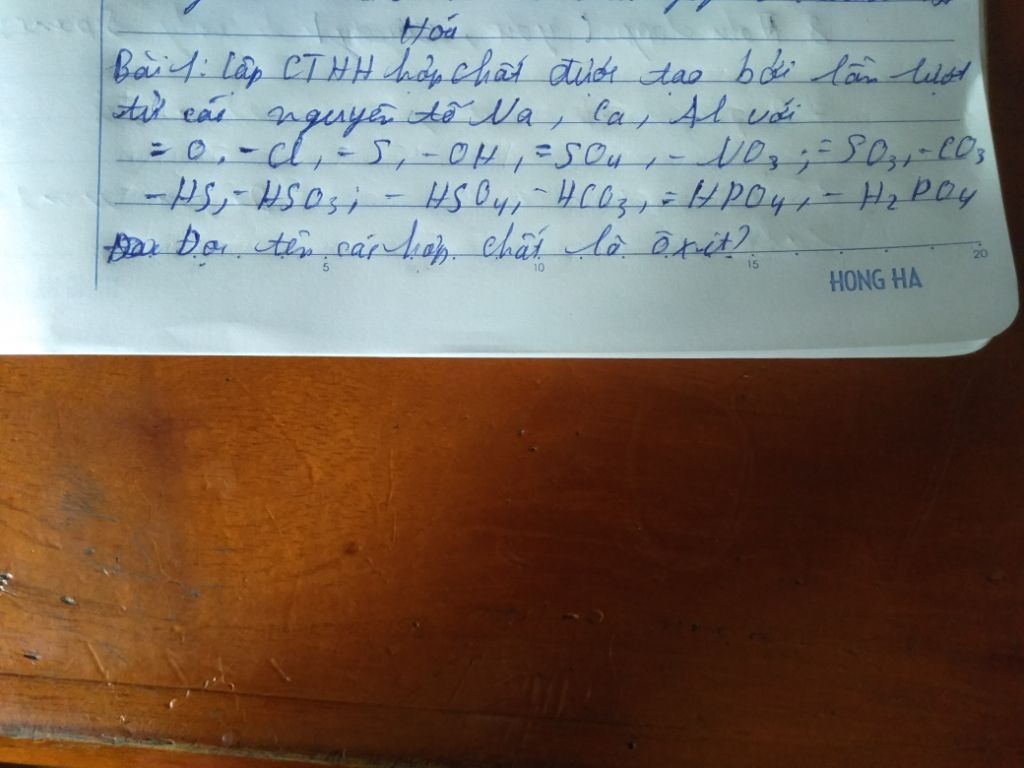 Hoá
Bài 1: Lập CTHH hợp chất được tạo bởi lần lượt
từ các nguyên tố Na, Ca, Al với
= O, - Cl, = S, - OH, = SO4, - NO3; = SO3, - CO3
- HS, - HSO3; - HSO4, - HCO3, = HPO4, - H2PO4
Đọc tên các hợp chất là ôxit?
5 10 15 20
HONG HA